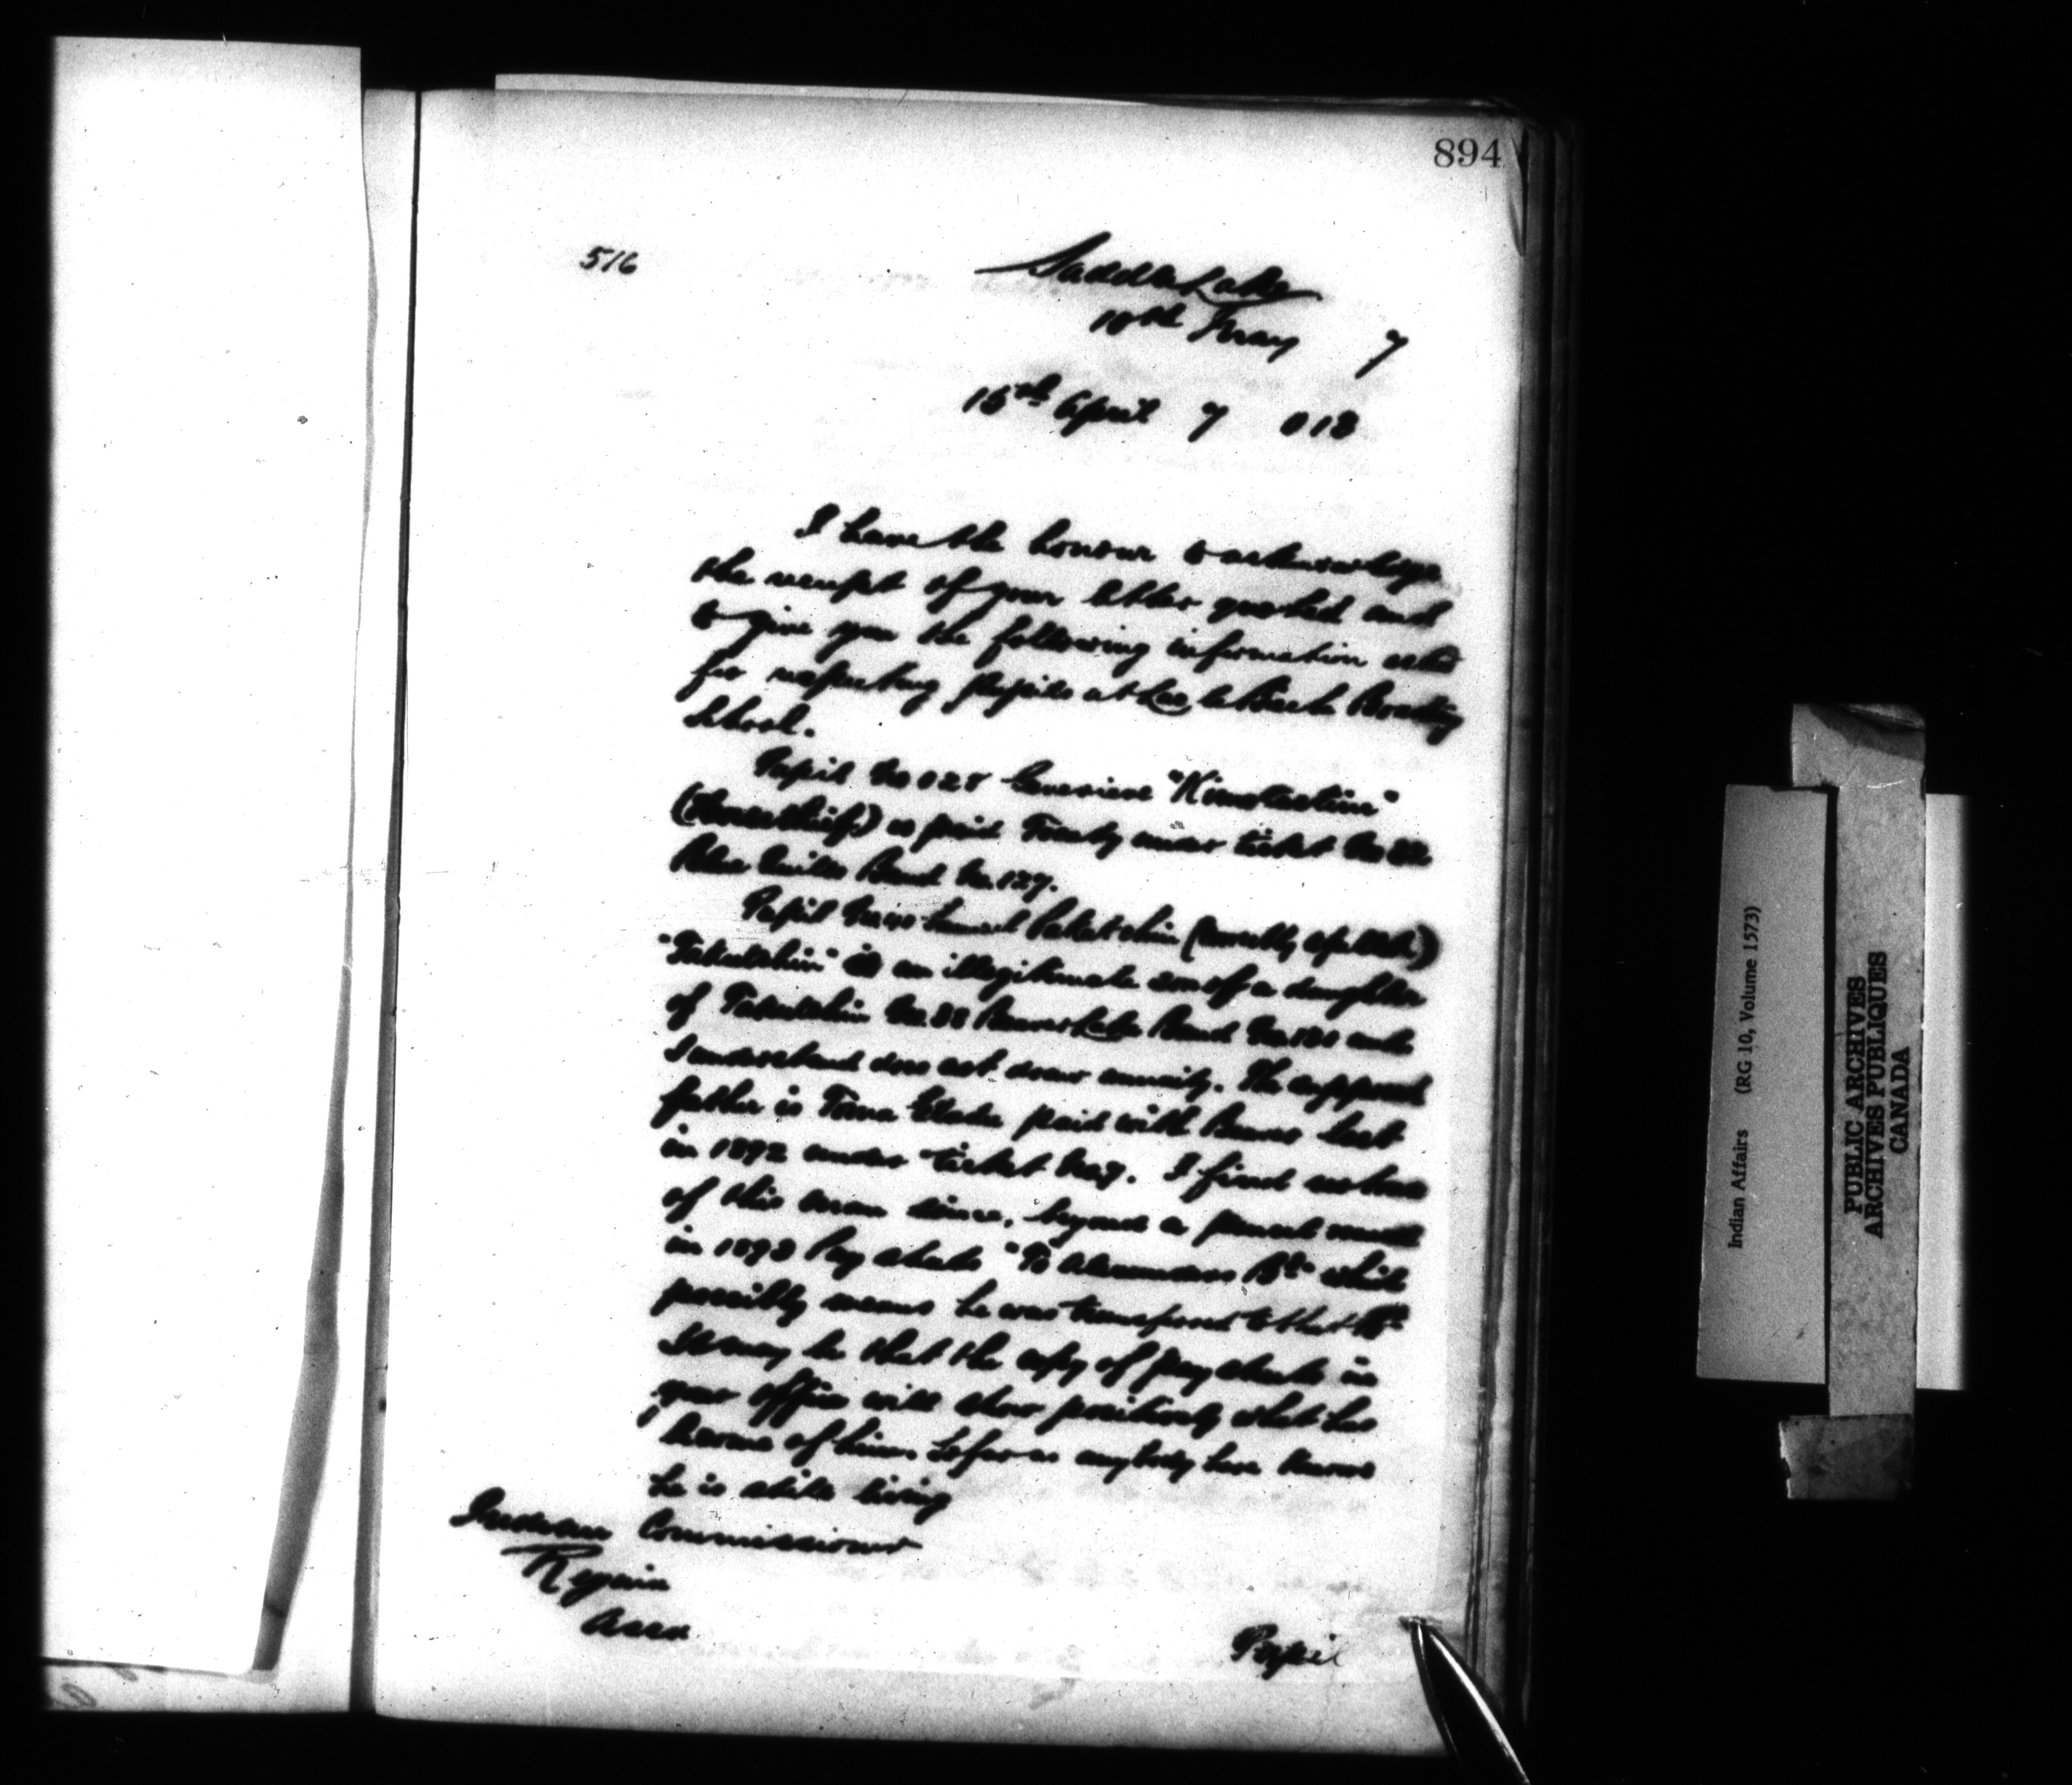 894
516
Saddle Lake
10th May 7
15th April 7 013
I have the honour to acknowledge
the receipt of your letter quoted and
to give you the following information
far respecting pupils at Lac la Biche Boarding
School.
Pupil No 028 Genevieve
is paid Treaty under ticket No 82
Blue Quills Band No. 127.
Pupil
is an illegitimate son of a daughter
of Beaver Lake Band and
I understand does not draw annuity. The supposed
father is paid with last
in 1892 under ticket No 7. I find no trace
of this man since, beyond a pencil
in 1893 Pay sheets "To Alexanders Bd" which
possibly means he was transferred to that Bd
It may be that the copy of pay sheets in
your office will show positively what has
become of him. So far as anybody here knows
he is still living
Indian Commissioner
Regina
Assa
Pupil
Indian Affairs (RG 10, Volume 1573)
PUBLIC ARCHIVES
ARCHIVES PUBLIQUES
CANADA